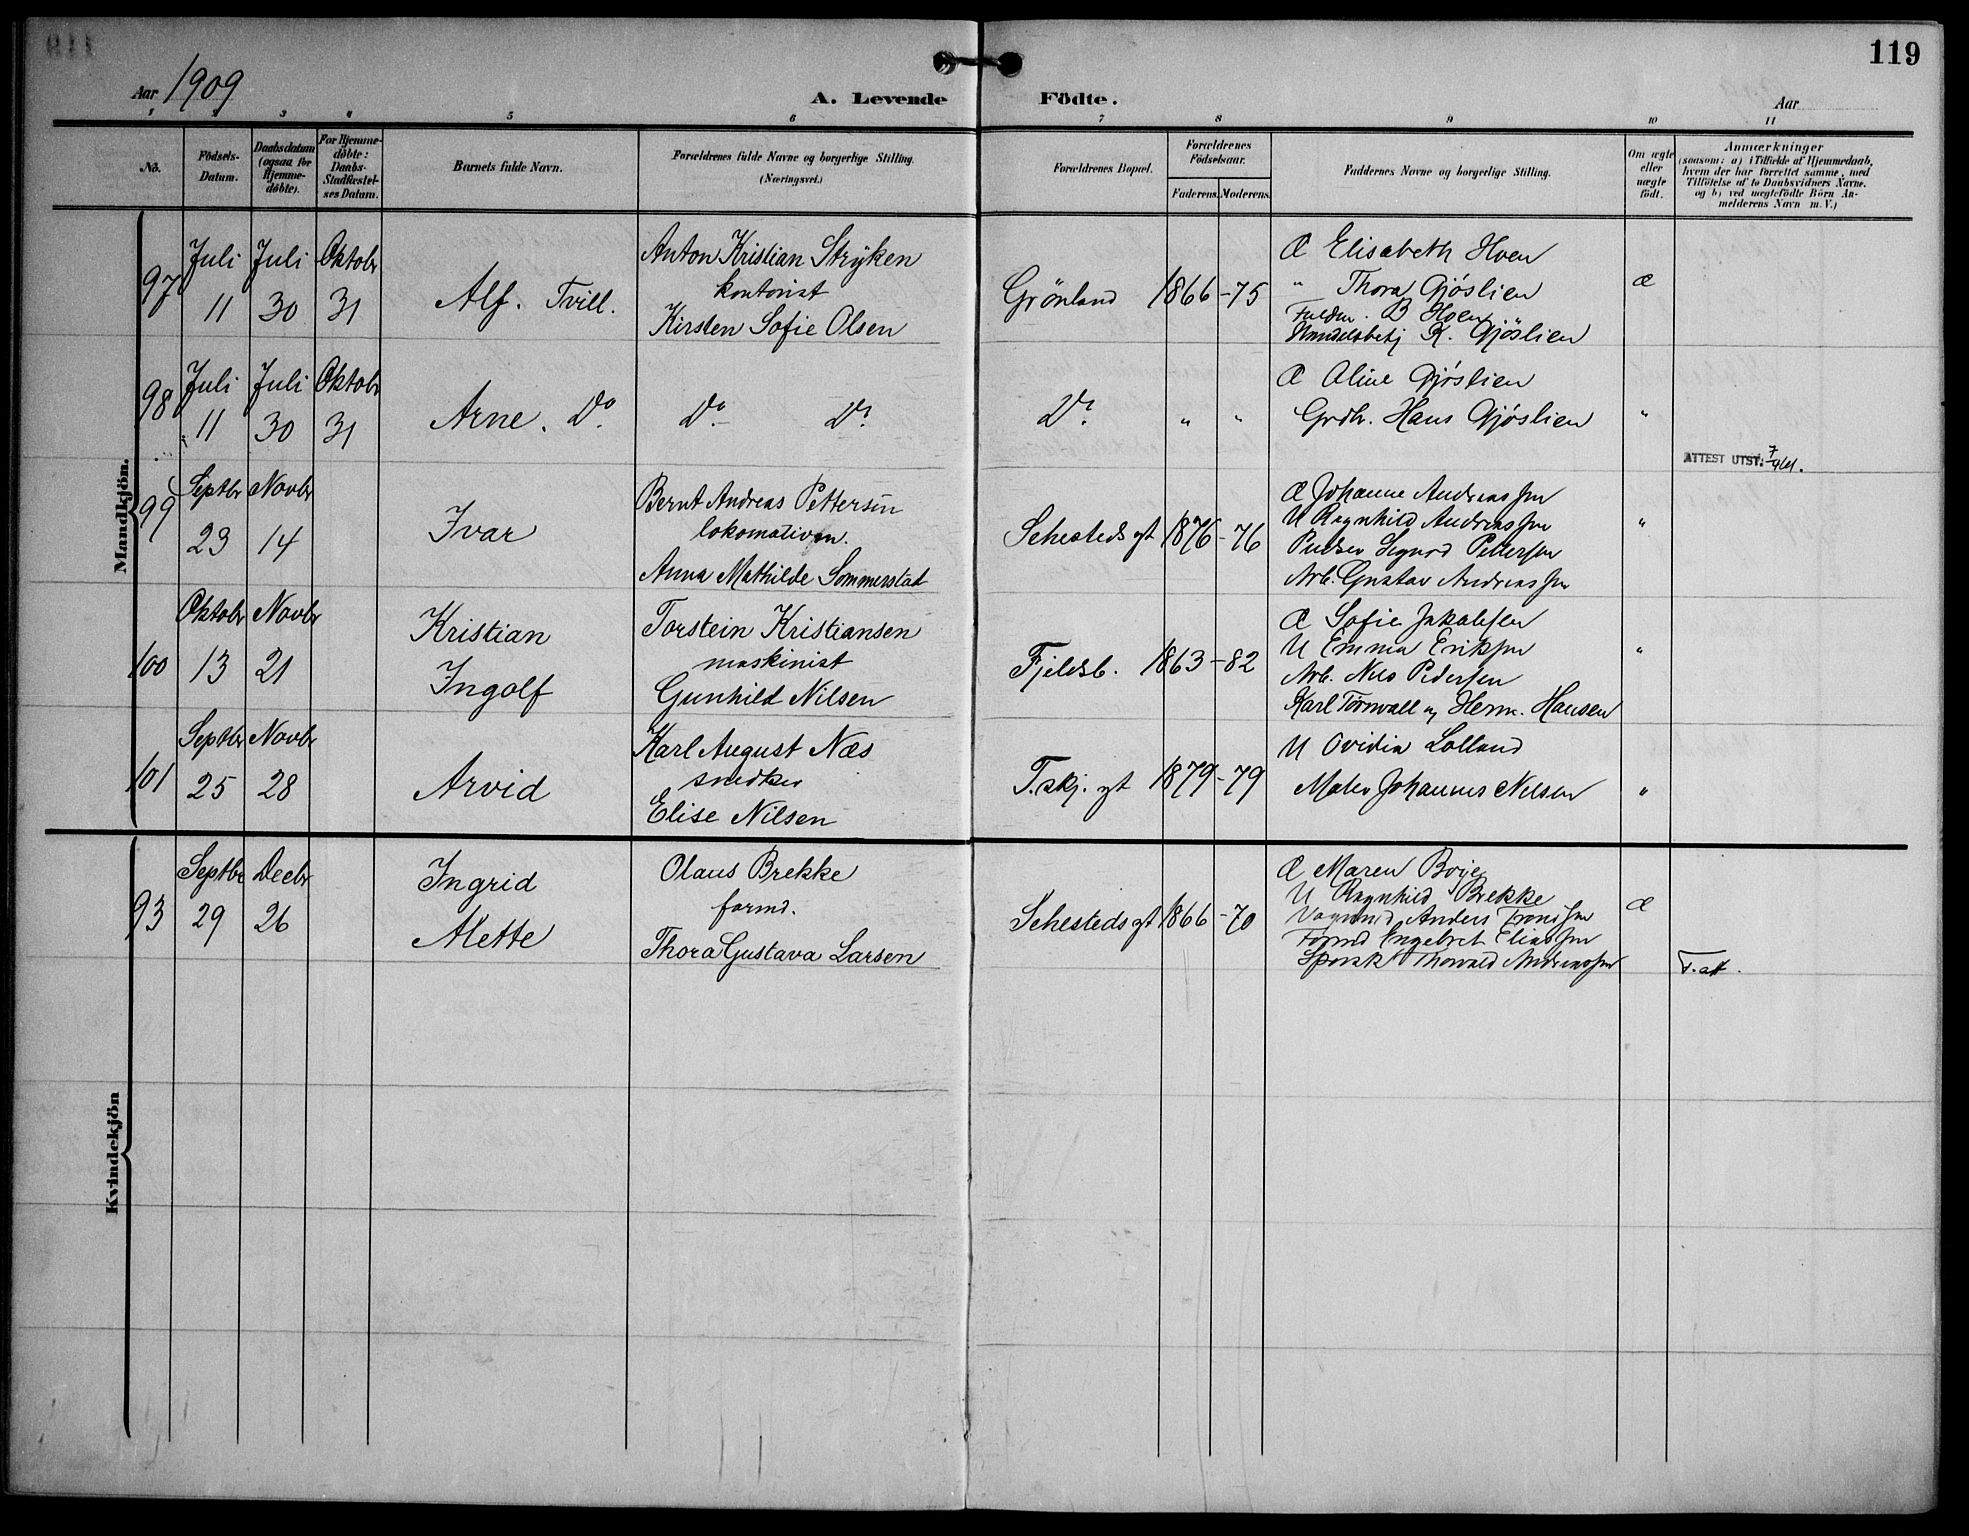 119
Aar 1909
A. Levende Födte.
Aar
1 2 3 4 5 6 7 8 9 10 11
No.
Födsels-Datum.
Daabsdatum (ogsaa for Hjemmedöbte).
For Hjemmedöbte: Daabs-Stadfæstelses Datum.
Barnets fulde Navn.
Forældrenes fulde Navne og borgerlige Stilling.
(Næringsvei.)
Forældrenes Bopæl.
Forældrenes Födselsaar.
Faderens. Moderens.
Faddernes Navne og borgerlige Stilling.
Om ægte eller uægte födt.
Anmærkninger
(saasom: a) i Tilfælde af Hjemmedaab,
hvem der har forrettet samme, med
Tilföielse af to Daabsvidners Navne.
og b) ved uægtefödte Börn An-
melderens Navn m. V.)
Mandkjön.
97
Juli 11
Juli 30
Oktobr 31
Alf. Tvill.
Anton Kristian Stryken
kontorist
Kirsten Sofie Olsen
Grönland
1866 - 75
Æ Elisabeth Hoen
" Thora Gjöslien
Fuldm. B Hoen
Handelsbetj K. Gjöslien
Æ
98
Juli 11
Juli 30
Oktobr 31
Arne. Do
Do Do
Do
" "
Æ Oline Gjöslien
Grdbr. Hans Gjöslien
"
ATTEST UTST.
99
Septbr 23
Novbr 14
Ivar
Bernt Andreas Pettersen
lokomotivm.
Anna Mathilde Sommerstad
Sehesteds gt
1876 - 76
Æ Johanne Andreassen
U Ragnhild Andreassen
Pudser Sigurd Pettersen
Arb. Gustav Andreassen
"
100
Oktobr 13
Novbr 21
Kristian
Ingolf
Torstein Kristiansen
maskinist
Gunhild Nilsen
Fjeldsb.
1863 - 82
Æ Sofie Jakobsen
U Emma Eriksen
Arb. Nils Pedersen
Karl Tornvall og Herm. Hansen
"
101
Septbr 25
Novbr 28
Arvid
Karl August Næs
snedker
Elise Nilsen
T.skj. gt
1879 - 79
U Ovidia Lolland
Maler Johannes Nilsen
"
Kvindekjön
93
Septbr 29
Decbr 26
Ingrid
Alette
Olaus Brekke
formd.
Thora Gustava Larsen
Sehesteds gt
1866 - 70
Æ Maren Boye
U Ragnhild Brekke
Anders Trondsen
Formd Engebret Eliassen
Thorvald Andreassen
Æ
F. att.